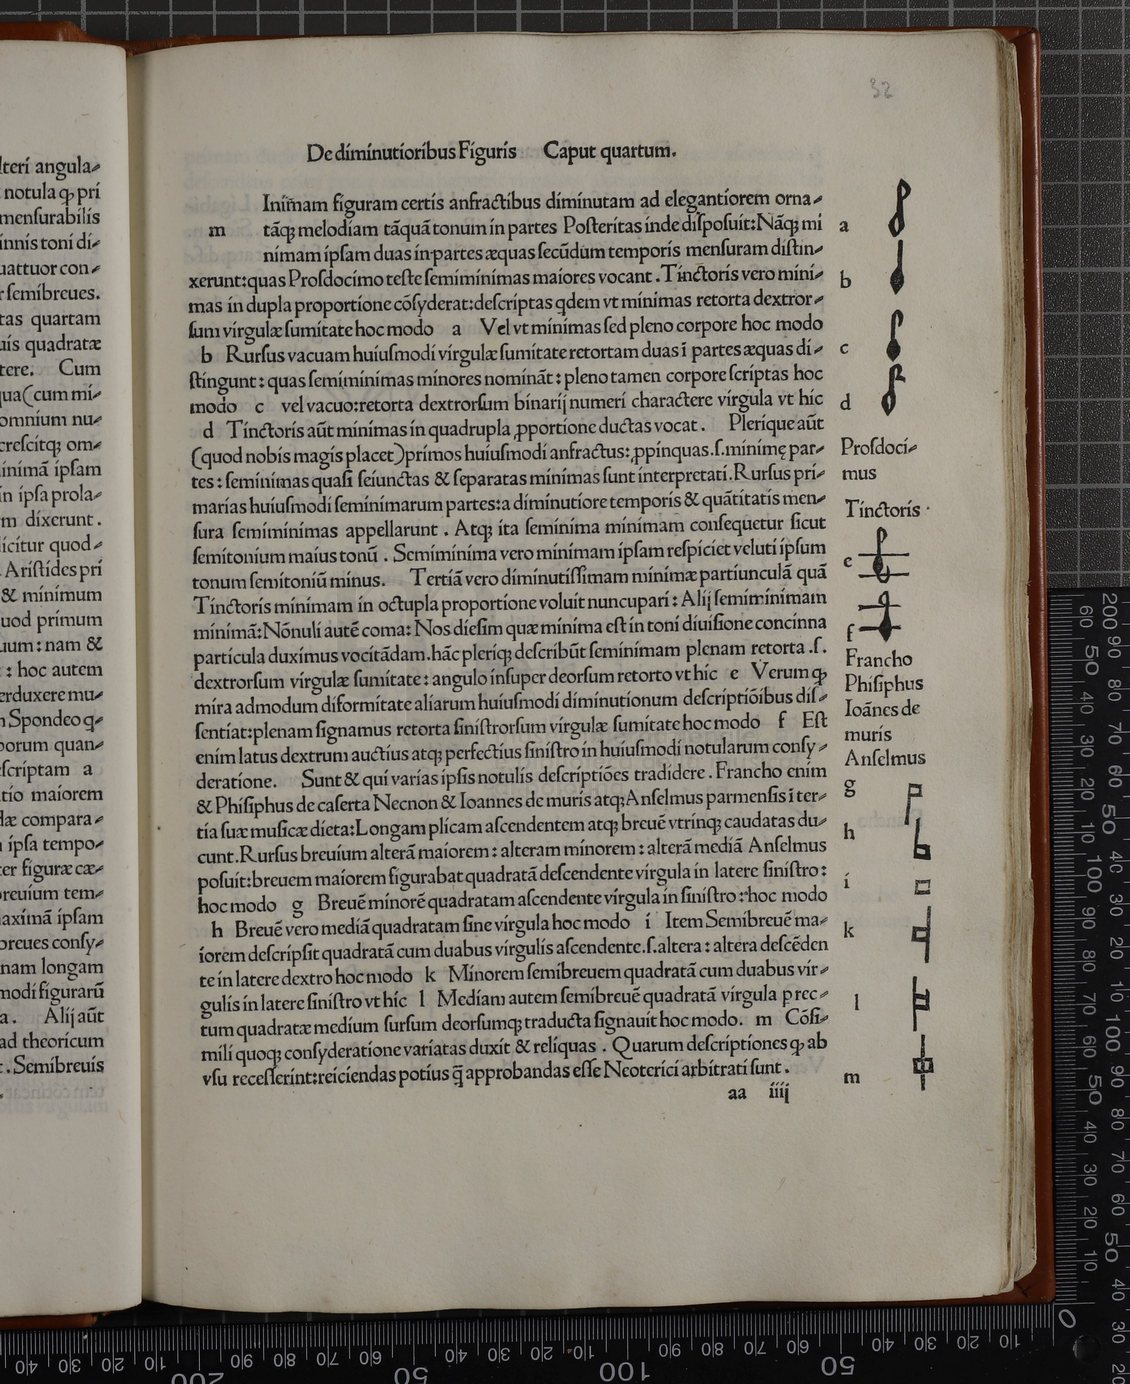 lteri angula⸗
notula ꝙ pri
menſurabilis
innis toni di⸗
uattuor con⸗
r ſemibreues.
tas quartam
uis quadratæ
tere. Cum
qua(cum mi⸗
omnium nu⸗
creſcitqꝫ om⸗
inimā ipſam
in ipſa prola⸗
m dixerunt.
licitur quod⸗
. Ariſtides pri
& minimum
quod primum
uum: nam &
: hoc autem
erduxere mu⸗
n Spondeo ꝙ⸗
porum quan⸗
eſcriptam a
tio maiorem
læ compara⸗
a ipſa tempo⸗
ter figuræ cæ⸗
breuium tem⸗
axímā ipſam
breues conſy⸗
nam longam
modi figurarū
a. Alij aūt
ad theoricum
. Semibreuis
32
De diminutioribus Figuris Caput quartum.
m Inimam figuram certis anfractibus diminutam ad elegantiorem orna⸗
tāqꝫ melodiam tāquā tonum in partes Poſteritas inde diſpoſuit: Nāqꝫ mi
nimam ipſam duas in·partes æquas ſecūdum temporis menſuram diſtin⸗
xerunt: quas Proſdocimo teſte ſemiminimas maiores vocant. Tinctoris vero mini⸗
mas in dupla proportione cōſyderat: deſcriptas qdem vt minimas retorta dextror⸗
ſum virgulæ ſumitate hoc modo a Vel vt minimas ſed pleno corpore hoc modo
b Rurſus vacuam huiuſmodi virgulæ ſumitate retortam duas ī partes æquas di⸗
ſtingunt: quas ſemiminimas minores nomināt: pleno tamen corpore ſcriptas hoc
modo c vel vacuo: retorta dextrorſum binarij numeri charactere virgula vt hic
d Tinctoris aūt minimas in quadrupla ꝓportione ductas vocat. Plerique aūt
(quod nobis magis placet) primos huiuſmodi anfractus: ꝓpinquas .ſ. minimę par⸗
tes: ſeminimas quaſi ſeiunctas & ſeparatas minimas ſunt interpretati. Rurſus pri⸗
marias huiuſmodi ſeminimarum partes: a diminutiore temporis & quātitatis men⸗
ſura ſemiminimas appellarunt. Atqꝫ ita ſeminima minimam conſequetur ſicut
ſemitonium maius tonū. Semiminima vero minimam ipſam reſpiciet veluti ipſum
tonum ſemitoniū minus. Tertiā vero diminutiſſimam minimæ partiunculā quā
Tinctoris minimam in octupla proportione voluit nuncupari: Alij ſemiminimam
minimā: Nōnuli autē coma: Nos dieſim quæ minima eſt in toni diuiſione concinna
particula duximus vocitādam. hāc pleriqꝫ deſcribūt ſeminimam plenam retorta .ſ.
dextrorſum virgulæ ſumitate: angulo inſuper deorſum retorto vt hic e Verum ꝙ
mira admodum diformitate aliarum huiuſmodi diminutionum deſcriptiōibus diſ⸗
ſentiat: plenam ſignamus retorta ſiniſtrorſum virgulæ ſumitate hoc modo f Eſt
enim latus dextrum auctius atqꝫ perfectius ſiniſtro in huiuſmodi notularum conſy⸗
deratione. Sunt & qui varias ipſis notulis deſcriptiōes tradidere. Francho enim
& Phiſiphus de caſerta Necnon & Ioannes de muris atqꝫ Anſelmus parmenſis ī ter⸗
tia ſuæ muſicæ dieta: Longam plicam aſcendentem atqꝫ breuē vtrinqꝫ caudatas du⸗
cunt. Rurſus breuium alterā maiorem: alteram minorem: alterā mediā Anſelmus
poſuit: breuem maiorem figurabat quadratā deſcendente virgula in latere ſiniſtro:
hoc modo g Breuē minorē quadratam aſcendente virgula in ſiniſtro: hoc modo
h Breuē vero mediā quadratam ſine virgula hoc modo i Item Semibreuē ma⸗
iorem deſcripſit quadratā cum duabus virgulis aſcendente .ſ. altera: altera deſcēden
te in latere dextro hoc modo k Minorem ſemibreuem quadratā cum duabus vir⸗
gulis in latere ſiniſtro vt hic l Mediam autem ſemibreuē quadratā virgula p rec⸗
tum quadratæ medium ſurſum deorſumqꝫ traducta ſignauit hoc modo. m Cōſi⸗
mili quoqꝫ conſyderatione variatas duxit & reliquas. Quarum deſcriptiones ꝙ ab
vſu receſſerint: reiciendas potius q̄ approbandas eſſe Neoterici arbitrati ſunt.
aa iiij
a
b
c
d
Proſdoci⸗
mus
Tinctoris·
e
f
Francho
Phiſiphus
Ioānes de
muris
Anſelmus
g
h
i
k
l
m